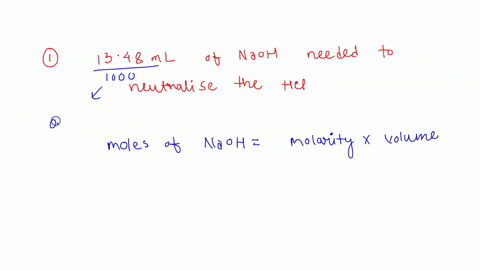 ① 13.48 mL of NaOH needed to
1000
neutralise the HCl
②
moles of NaOH = molarity x volume